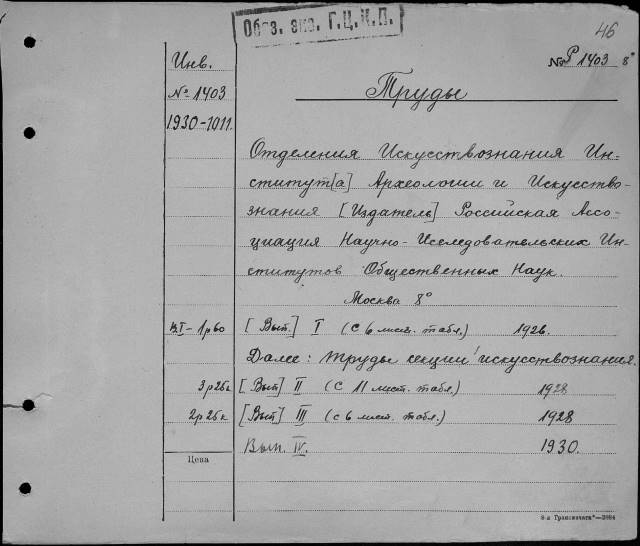 Обяз. экз. Г.Ц.К.П.
46
Инв.
№ 1403
1930-1011.
№ Р 1403 8°
Труды
Отделения Искусствознания Ин-
ститут[а] Археологии и Искусство-
знания [Издатель] Российская Ассо-
циация Научно-Исследовательских Ин-
ститутов Общественных Наук.
Москва 8°
в.I - 1р60 [Вып.] I (с 6 лист. табл.) 1926.
Далее: Труды секции искусствознания.
3р25к [Вып] II (с 11 лист. табл.) 1928
2р25к [Вып] III (с 6 лист. табл.) 1928
Вып. IV. 1930.
Цена
8-я Транспечати"—2984